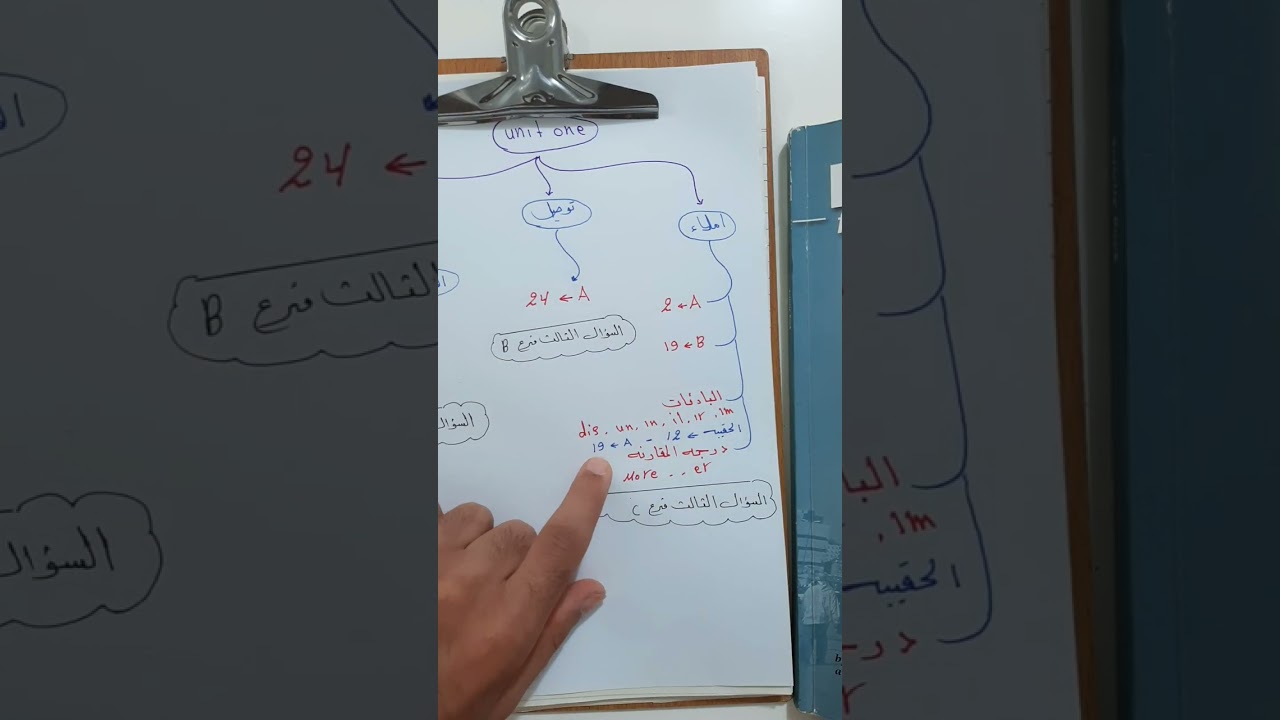 unit one
املاء
توصيل
2 ← A
24 ← A
19 ← B
السؤال الثالث فرع B
البادئات
dis, un, in, il, ir, im
الحقيبه ← 12 - 19 ← A
درجه المقارنه
More .. er
السؤال الثالث فرع C
24 ←
الثالث فرع B
السؤال
السؤال
, im
الحقيبه